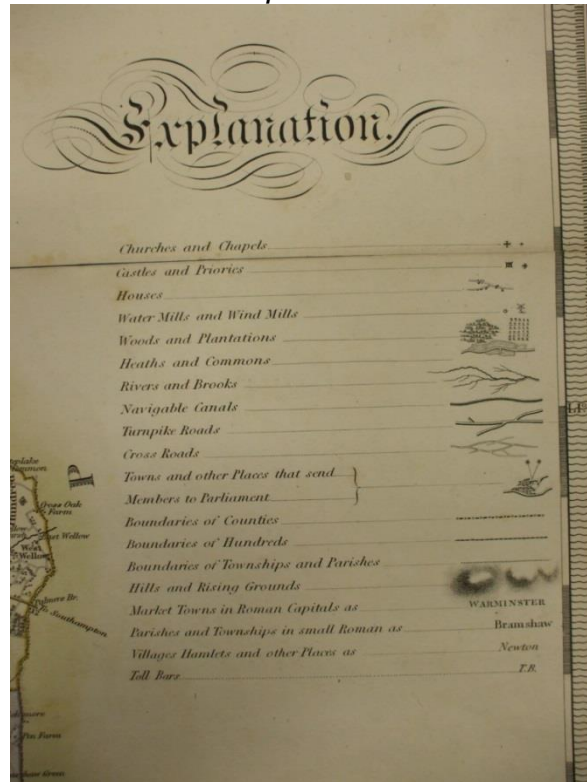 Explanation.
Churches and Chapels
Castles and Priories
Houses
Water Mills and Wind Mills
Woods and Plantations
Heaths and Commons
Rivers and Brooks
Navigable Canals
Turnpike Roads
Cross Roads
Towns and other Places that send
Members to Parliament
Boundaries of Counties
Boundaries of Hundreds
Boundaries of Townships and Parishes
Hills and Rising Grounds
Market Towns in Roman Capitals as WARMINSTER
Parishes and Townships in small Roman as Bramshaw
Villages Hamlets and other Places as Newton
Toll Bars T.B.
Cross Oak
Farm
East Wellow
West
Wellow
To Southampton
Farm
Green